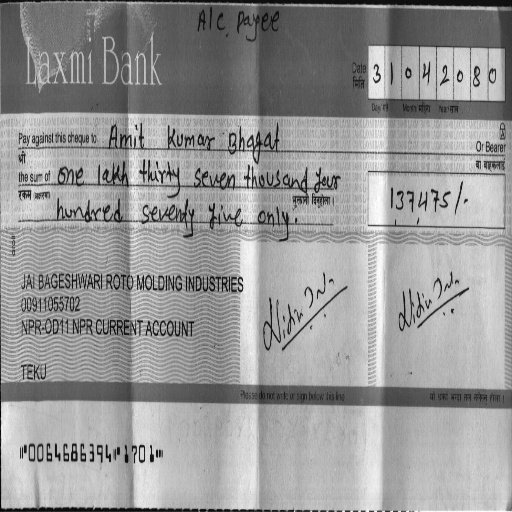 A/C Payee
Laxmi Bank
Date 31042080
मिति
Day गते Month महिना Year साल
Pay against this cheque to Amit Kumar Bhagat
श्री Or Bearer
the sum of One lakh thirty seven thousand four वा वाहकलाई
रकम
hundred seventy five only. 137,475/-
JAI BAGESHWARI ROTO MOLDING INDUSTRIES
00911055702
NPR-OD11 NPR CURRENT ACCOUNT
TEKU
Please do not write or sign below this line
"0064686394" 1701"